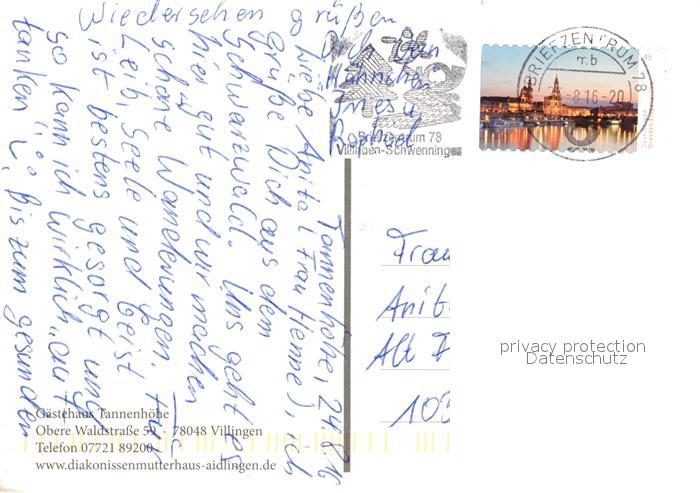 Tannenhöhe, 24.8.16
Liebe Anita (Frau Henne), ich
grüße Dich aus dem
Schwarzwald. Uns geht es
hier gut und wir machen
schöne Wanderungen. Für
Leib, Seele und Geist
ist bestens gesorgt und
so kann ich wirklich „auf-
tanken". Bis zum gesunden
Wiedersehen grüßen
Dich Dein
Hähnchen
Briefzentrum 78
Villingen-Schwenningen
BRIEFZENTRUM 78
mb
8.16-20
45
Frau
Anit
Alt
privacy protection
Datenschutz
Gästehaus Tannenhöhe
Obere Waldstraße 59 · 78048 Villingen
Telefon 07721 89200
www.diakonissenmutterhaus-aidlingen.de